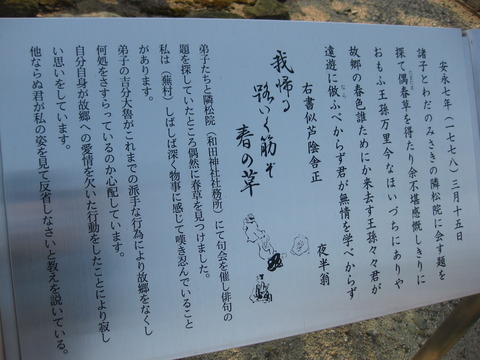 安永七年(一七七八)三月十五日
諸子とわだのみさきの隣松院に会す題を
探て偶春草を得たり余不堪感慨しきりに
おもふ王孫万里今なほいづちにありや
故郷の春色誰ためにか来去す王孫々々君が
遠遊に倣ふべからず君が無情を学べからず
右書似芦陰舎正
夜半翁
我帰る
路いく筋ぞ
春の草
弟子たちと隣松院(和田神社社務所)にて句会を催し俳句の
題を探していたところ偶然に春草を見つけました。
私は(蕪村)しばしば深く物事に感じて嘆き忍んでいること
があります。
弟子の吉分大魯がこれまでの派手な行為により故郷をなくし
何処をさすらっているのか心配しています。
自分自身が故郷への愛情を欠いた行動をしたことにより寂し
い思いをしています。
他ならぬ君が私の姿を見て反省しなさいと教えを説いている。